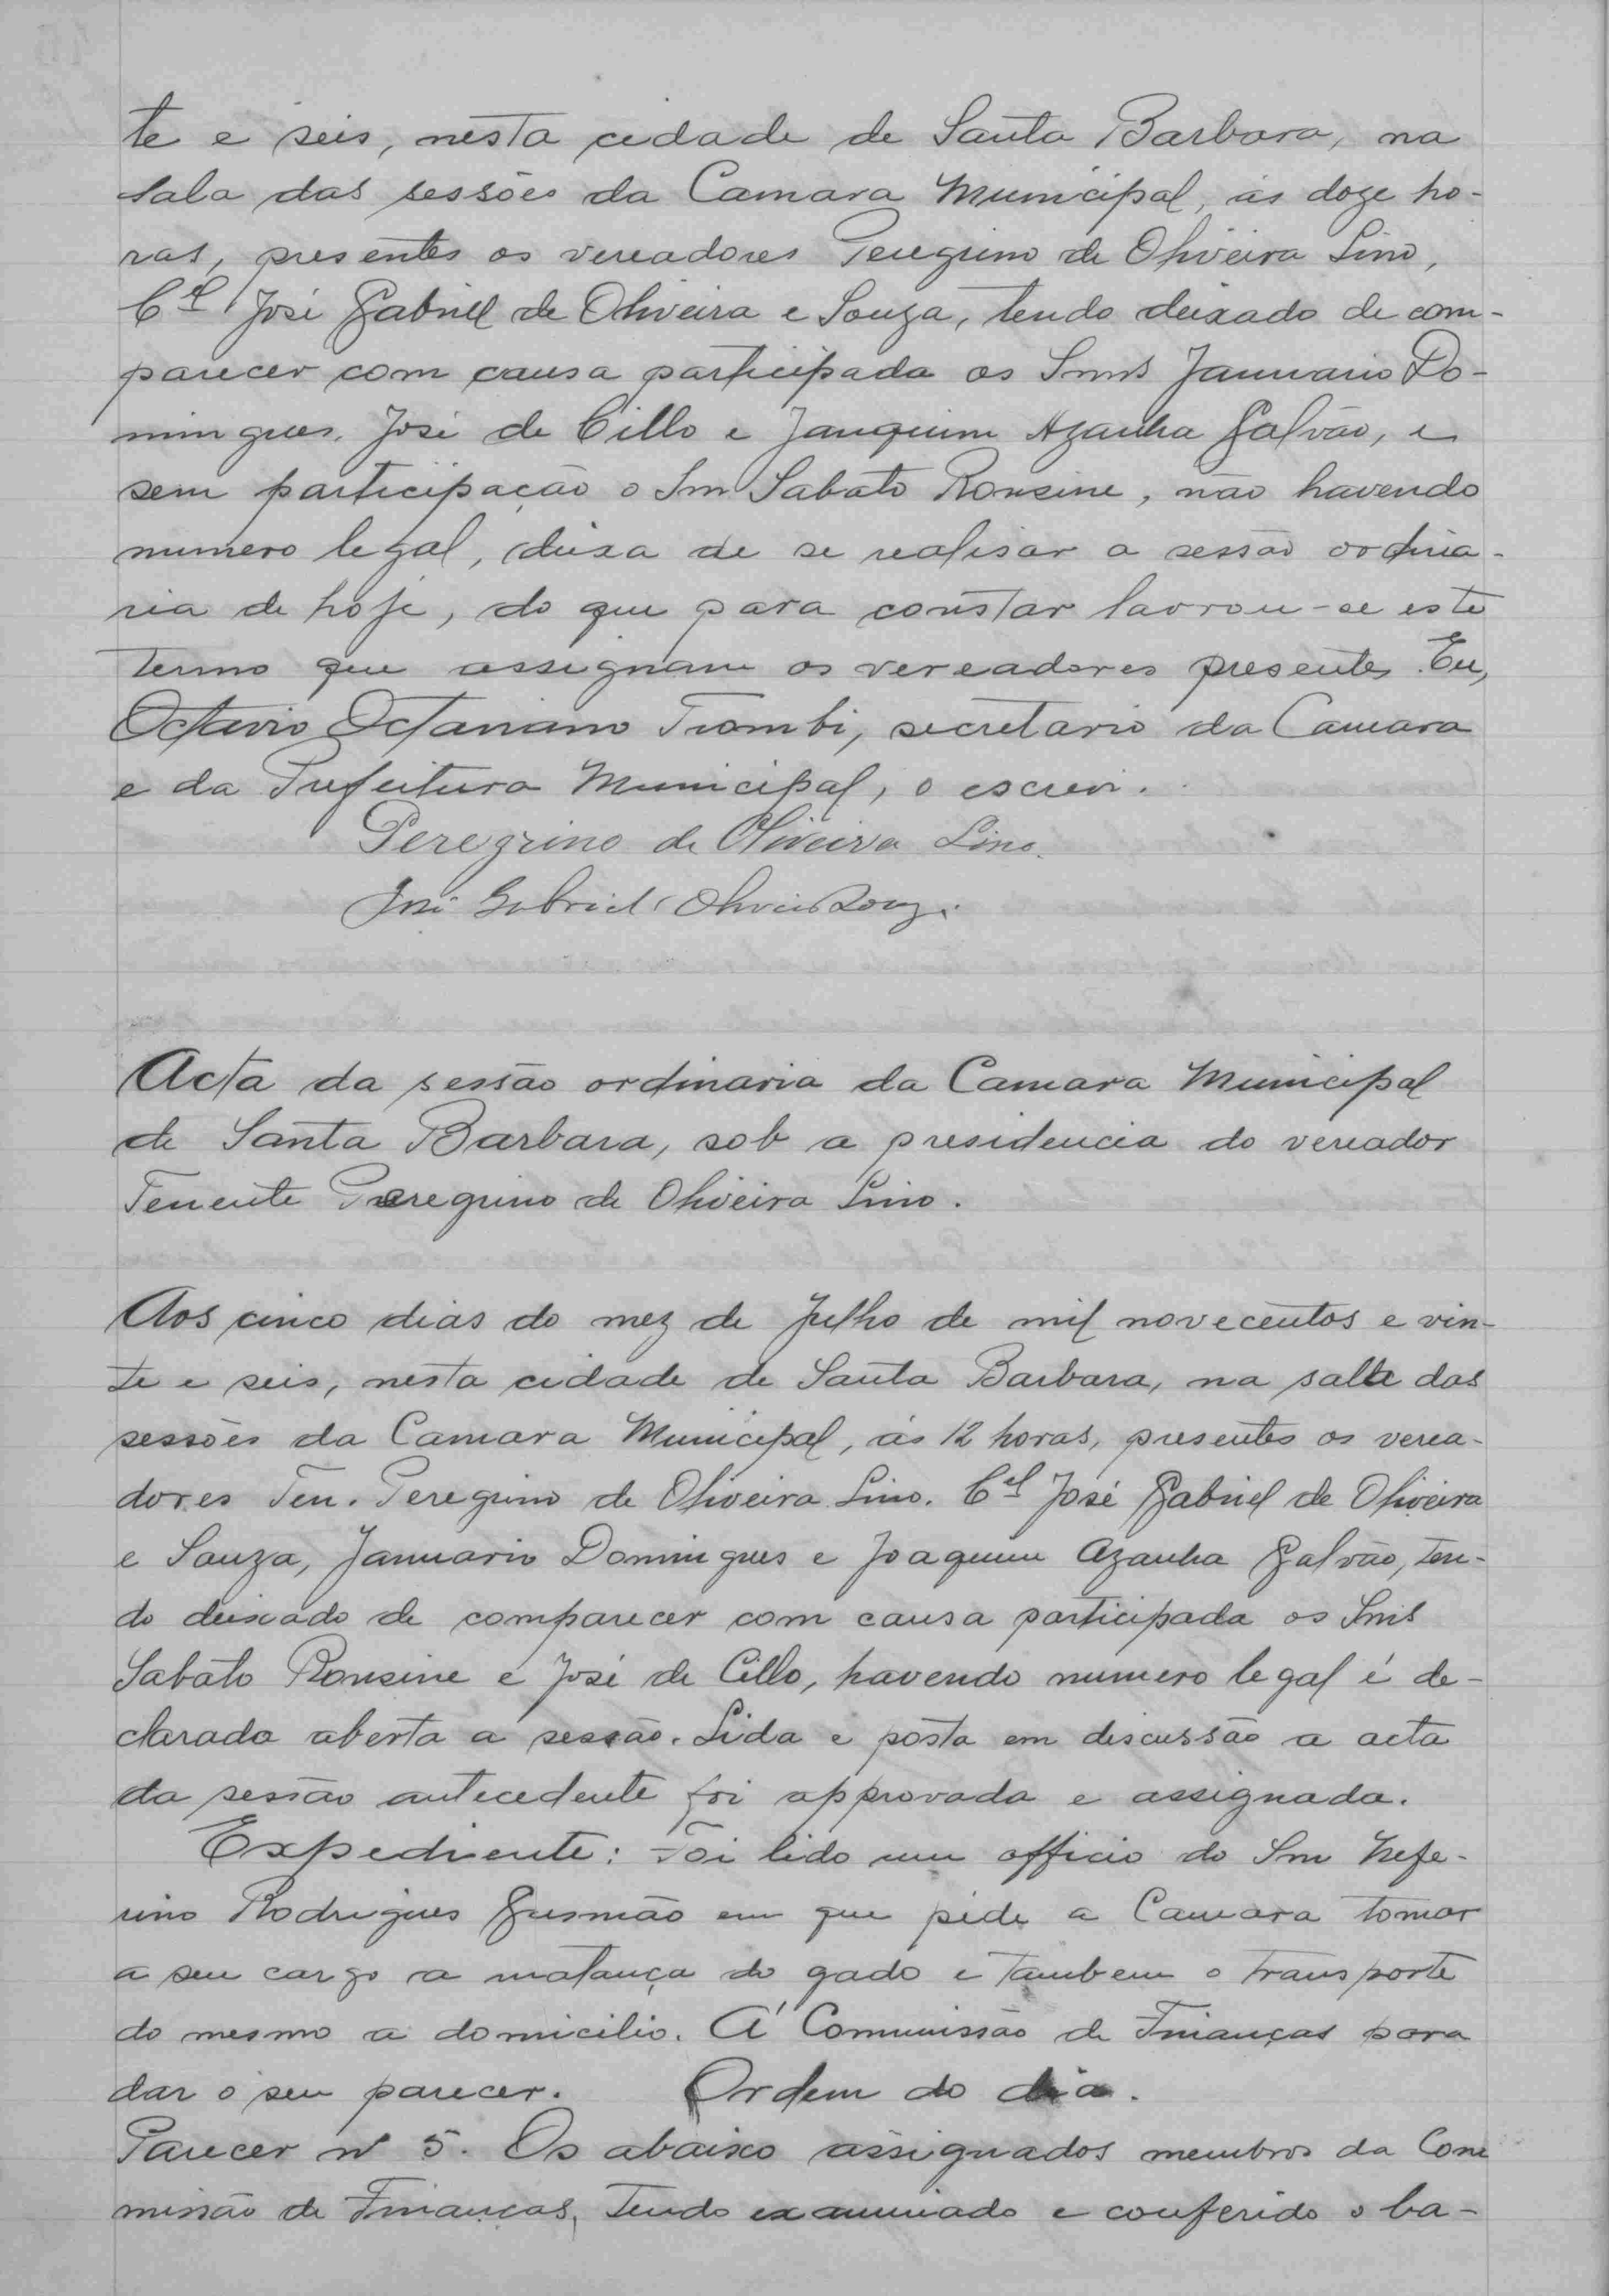 te e seis, nesta cidade de Santa Barbara, na
sala das sessões da Camara Municipal, ás doze ho-
ras, presentes os vereadores Peregrino de Oliveira Lino,
Cel José Gabriel de Oliveira e Souza, tendo deixado de com-
parecer com causa participada os Snrs Januario Do-
mingues, José de Cillo e Janquim Azanha Galvão, e
sem participação o Snr Sabato Ronsine, não havendo
numero legal, deixa de se realisar a sessão ordina-
ria de hoje, do que para constar lavrou-se este
termo que assignam os vereadores presentes. Eu,
Octavio Octaviano Trombi, secretario da Camara
e da Prefeitura Municipal, o escrevi.
Peregrino de Oliveira Lino.
José Gabriel Oliveira Souza
Acta da sessão ordinaria da Camara Municipal
de Santa Barbara, sob a presidencia do vereador
Tenente Peregrino de Oliveira Lino.
Aos cinco dias do mez de Julho de mil novecentos e vin-
te e seis, nesta cidade de Santa Barbara, na salla das
sessões da Camara Municipal, ás 12 horas, presentes os verea-
dores Ten. Peregrino de Oliveira Lino. Cel José Gabriel de Oliveira
e Souza, Januario Domingues e Joaquim Azanha Galvão, ten-
do deixado de comparecer com causa participada os Snrs
Sabato Ronsine e José de Cillo, havendo numero legal é de-
clarada aberta a sessão. Lida e posta em discussão a acta
da sessão antecedente foi approvada e assignada.
Expediente: Foi lido um officio do Snr Zefe-
rino Rodrigues Gusmão em que pede a Camara tomar
a seu cargo a matança do gado e tambem o transporte
do mesmo a domicilio. Á Commissão de Finanças para
dar o seu parecer. Ordem do dia.
Parecer nº 5. Os abaixo assignados membros da Com
missão de Finanças, tendo examinado e conferido o ba-